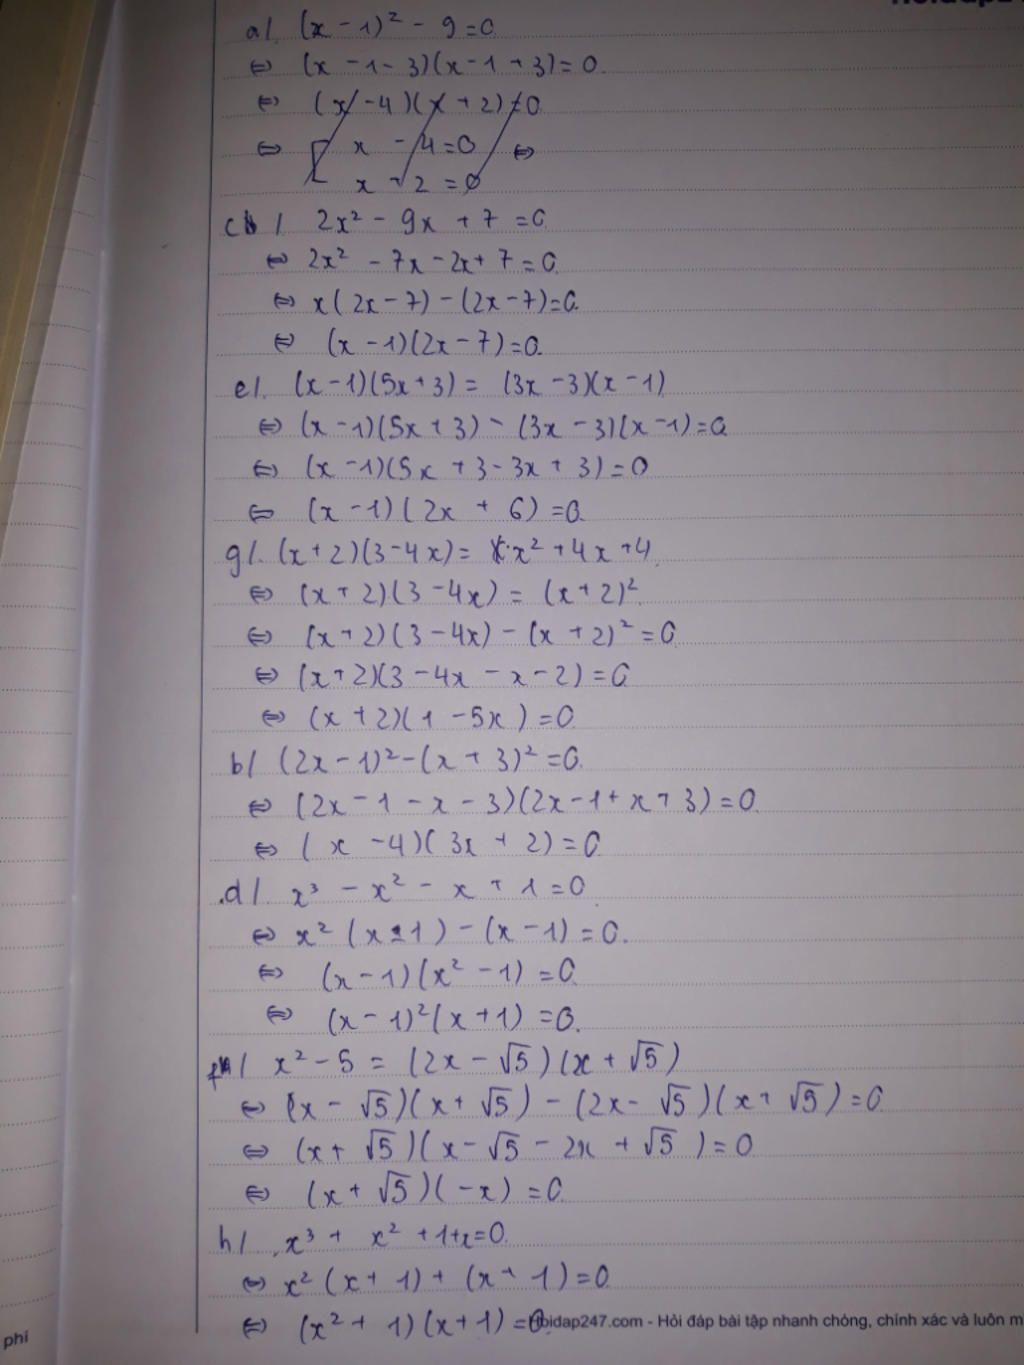 a/. (x - 1)² - 9 = 0
⇔ (x - 1 - 3)(x - 1 + 3) = 0.
⇔ (x - 4)(x + 2) = 0
⇔ [ x - 4 = 0 ⇔
x + 2 = 0
c/. 2x² - 9x + 7 = 0
⇔ 2x² - 7x - 2x + 7 = 0.
⇔ x(2x - 7) - (2x - 7) = 0.
⇔ (x - 1)(2x - 7) = 0.
e/. (x - 1)(5x + 3) = (3x - 3)(x - 1)
⇔ (x - 1)(5x + 3) - (3x - 3)(x - 1) = 0
⇔ (x - 1)(5x + 3 - 3x + 3) = 0
⇔ (x - 1)(2x + 6) = 0.
g/. (x + 2)(3 - 4x) = x² + 4x + 4
⇔ (x + 2)(3 - 4x) = (x + 2)².
⇔ (x + 2)(3 - 4x) - (x + 2)² = 0
⇔ (x + 2)(3 - 4x - x - 2) = 0
⇔ (x + 2)(1 - 5x) = 0.
b/ (2x - 1)² - (x + 3)² = 0.
⇔ (2x - 1 - x - 3)(2x - 1 + x + 3) = 0.
⇔ (x - 4)(3x + 2) = 0
.d/. x³ - x² - x + 1 = 0
⇔ x² (x - 1) - (x - 1) = 0.
⇔ (x - 1)(x² - 1) = 0.
⇔ (x - 1)²(x + 1) = 0.
f/ x² - 5 = (2x - √5)(x + √5)
⇔ (x - √5)(x + √5) - (2x - √5)(x + √5) = 0
⇔ (x + √5)(x - √5 - 2x + √5) = 0
⇔ (x + √5)(-x) = 0.
h/ x³ + x² + 1 + x = 0.
⇔ x² (x + 1) + (x + 1) = 0
⇔ (x² + 1)(x + 1) = 0.
Hoidap247.com - Hỏi đáp bài tập nhanh chóng, chính xác và luôn m
phí